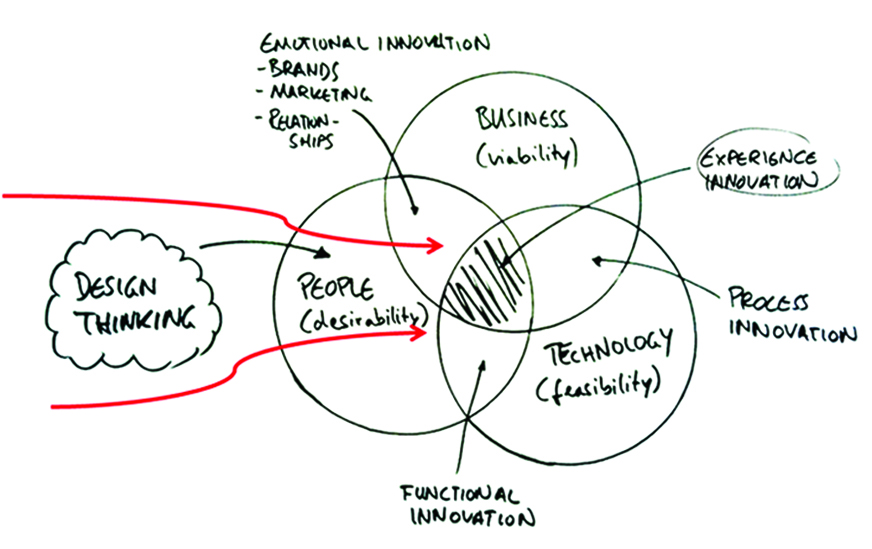 EMOTIONAL INNOVATION
- BRANDS
- MARKETING
- RELATION-
SHIPS
BUSINESS
(viability)
EXPERIENCE
INNOVATION
DESIGN
THINKING
PEOPLE
(desirability)
PROCESS
INNOVATION
TECHNOLOGY
(feasibility)
FUNCTIONAL
INNOVATION